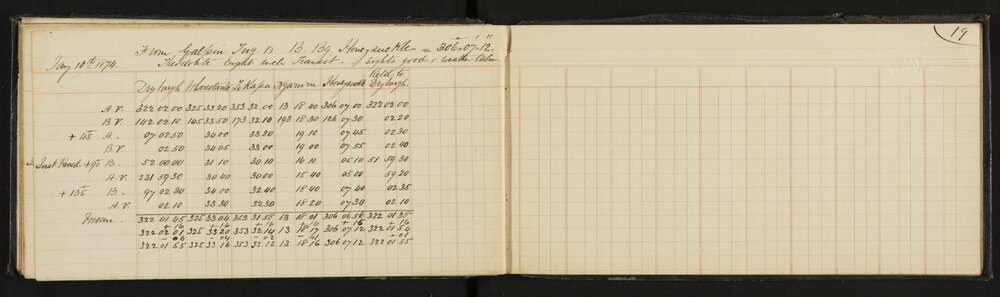 19
From Galpin Trig. D B. Bg Honeysuckle = 306-07-12.
May 10th 1874. Theodolite Eight inch Transit. Lights good; weather Calm.
Dryburgh Whanotanto Te Kapu Ngarum Honeysuckle Held to Dryburgh.
A.V. 322 02 00 325 33 20 353 32 00 13 18 40 306 07 00 322 02 00
B.V. 142 02 10 145 33 50 173 32 10 193 18 30 126 07 30 02 20
+ 45 A. 07 02 50 34 00 33 20 19 10 07 45 02 30
B.V. 02 50 34 05 33 00 19 00 07 55 02 40
Inst Reved. + 90 B. 52 00 00 31 10 30 10 16 10 05 10 51 59 30
A.V. 231 59 30 30 40 30 00 15 40 05 00 59 20
+ 135 B. 97 02 30 34 00 32 40 18 40 07 40 02 35
A.V. 02 10 33 30 32 30 18 20 07 30 02 10
Mean. 322 01 45 325 33 04 353 31 58 13 18 01 306 06 56 322 01 38
+ 16 + 16 + 16 + 16 + 16 + 16
322 02 01 325 33 20 353 32 14 13 18 17 306 07 12 322 01 54
- 06 - 04 - 02 - 01 + 01
322 01 55 325 33 16 353 32 12 13 18 16 306 07 12 322 01 55